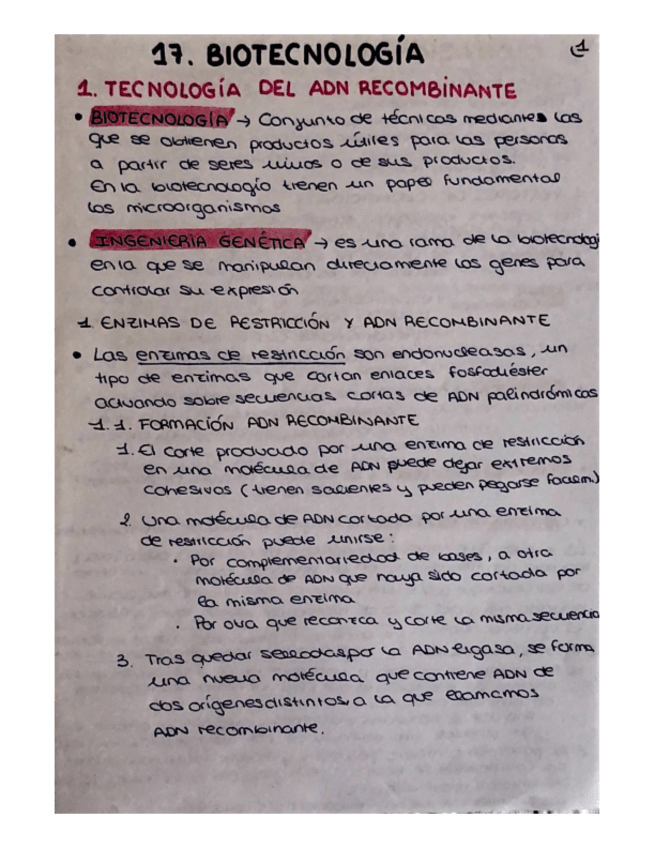 17. BIOTECNOLOGÍA
1
1. TECNOLOGÍA DEL ADN RECOMBINANTE
• BIOTECNOLOGÍA → Conjunto de técnicas mediantes las
que se obtienen productos útiles para las personas
a partir de seres vivos o de sus productos.
En la biotecnología tienen un papel fundamental
los microorganismos
• INGENIERIA GENÉTICA → es una rama de la biotecnologi
en la que se manipulan directamente los genes para
controlar su expresión
1. ENZIMAS DE RESTRICCIÓN Y ADN RECOMBINANTE
• Las enzimas de restricción son endonucleasas, un
tipo de enzimas que cortan enlaces fosfodiéster
actuando sobre secuencias cortas de ADN palindrómicas
1.1. FORMACIÓN ADN RECOMBINANTE
1. El corte producido por una enzima de restricción
en una molécula de ADN puede dejar extremos
cohesivos (tienen salientes y pueden pegarse facilm.)
2. Una molécula de ADN cortada por una enzima
de restricción puede unirse:
• Por complementariedad de bases, a otra
molécula de ADN que haya sido cortada por
la misma enzima
• Por otra que reconozca y corte la misma secuencia
3. Tras quedar selladas por la ADN ligasa, se forma
una nueva molécula que contiene ADN de
dos orígenes distintos, a la que llamamos
ADN recombinante.